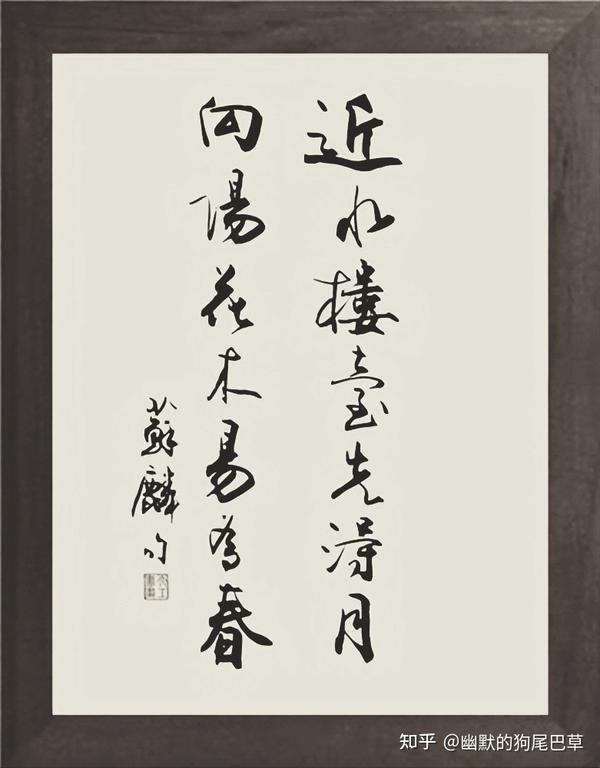 近水樓臺先得月
向陽花木易為春
蘇麟句
知乎 @幽默的狗尾巴草